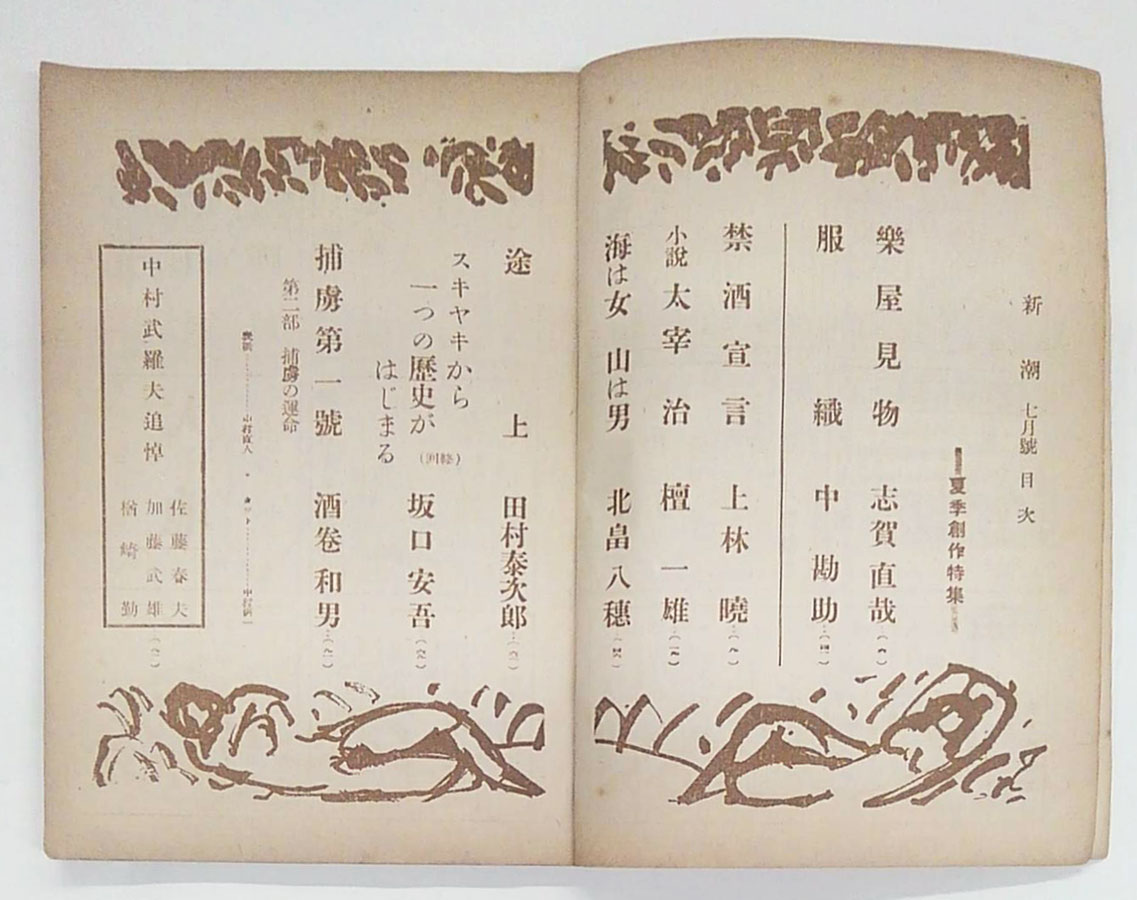 新潮 七月號 目次
夏季創作特集
樂屋見物 志賀直哉
服織 中勘助
禁酒宣言 上林曉
小說 太宰治 檀一雄
海は女 山は男 北畠八穗
途上 田村泰次郎
スキヤキから
一つの歷史が
はじまる
坂口安吾
捕虜第一號 酒卷和男
第二部 捕虜の運命
中村直人
中村武羅夫追悼
佐藤春夫
加藤武雄
楢崎勤